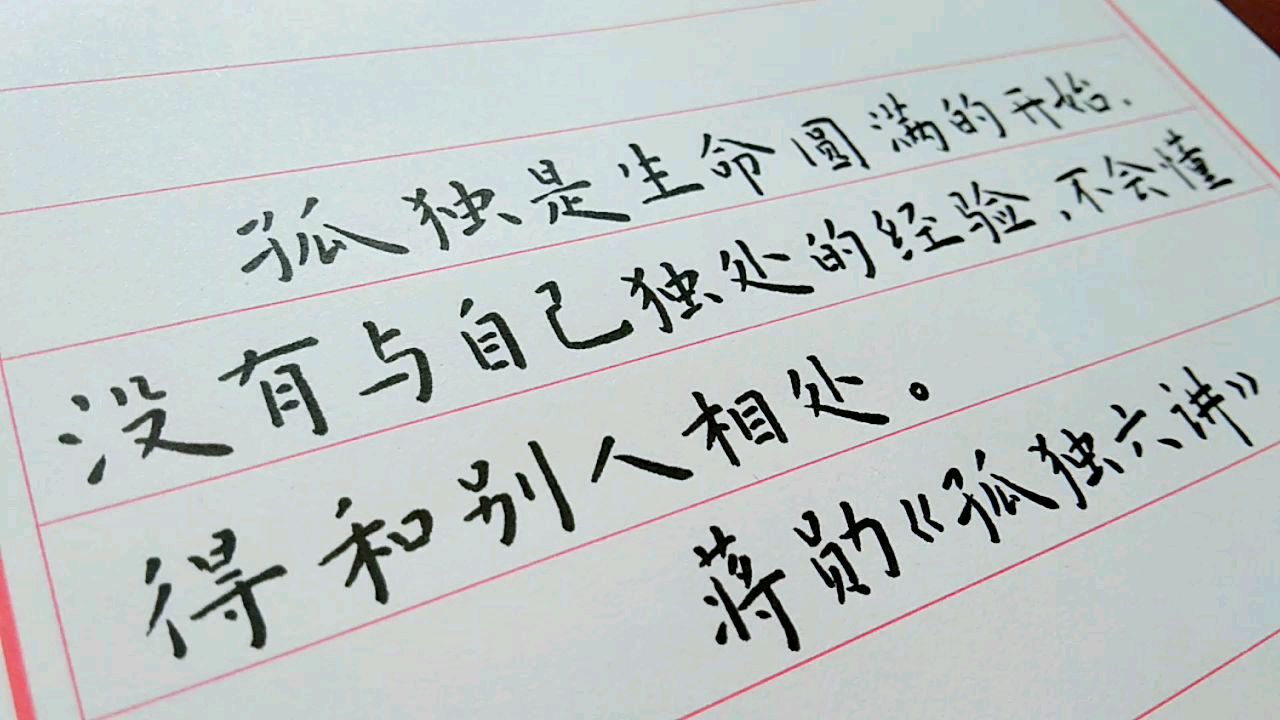 孤独是生命圆满的开始，
没有与自己独处的经验，不会懂
得和别人相处。
蒋勋《孤独六讲》